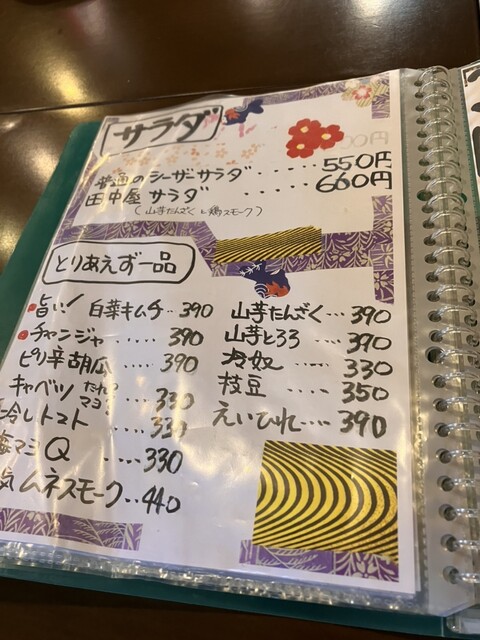 サラダ
00円
普通のシーザーサラダ ····· 550円
田中屋サラダ ····· 660円
(山芋たんざくと鶏スモーク)
とりあえず一品
旨い! 白菜キムチ ·· 390
チャンジャ ···· 390
ピリ辛胡瓜 ···· 390
キャベツ たれ? マヨ? ·· 330
冷しトマト ···· 330
梅マヨQ ···· 330
ムネスモーク ·· 440
山芋たんざく ·· 390
山芋とろろ ···· 390
冷奴 ···· 330
枝豆 ···· 350
えいひれ ···· 390